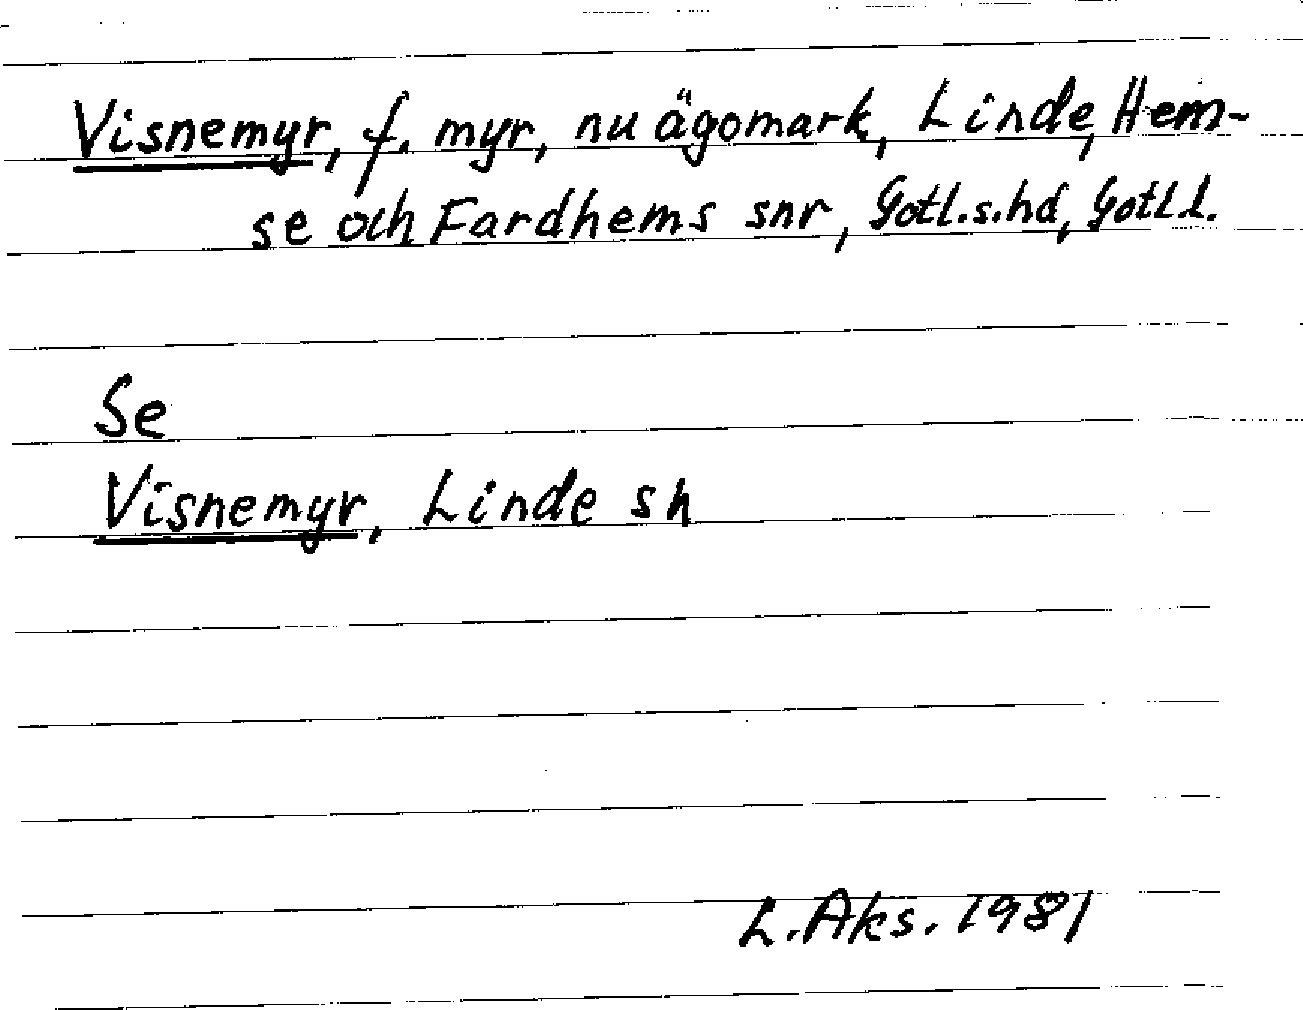 Visnemyr, f. myr, nu ägomark, Linde, Hem-
se och Fardhems snr, Gotl.s.hd, Gotl.l.
Se
Visnemyr, Linde sn
L.Aks. 1981